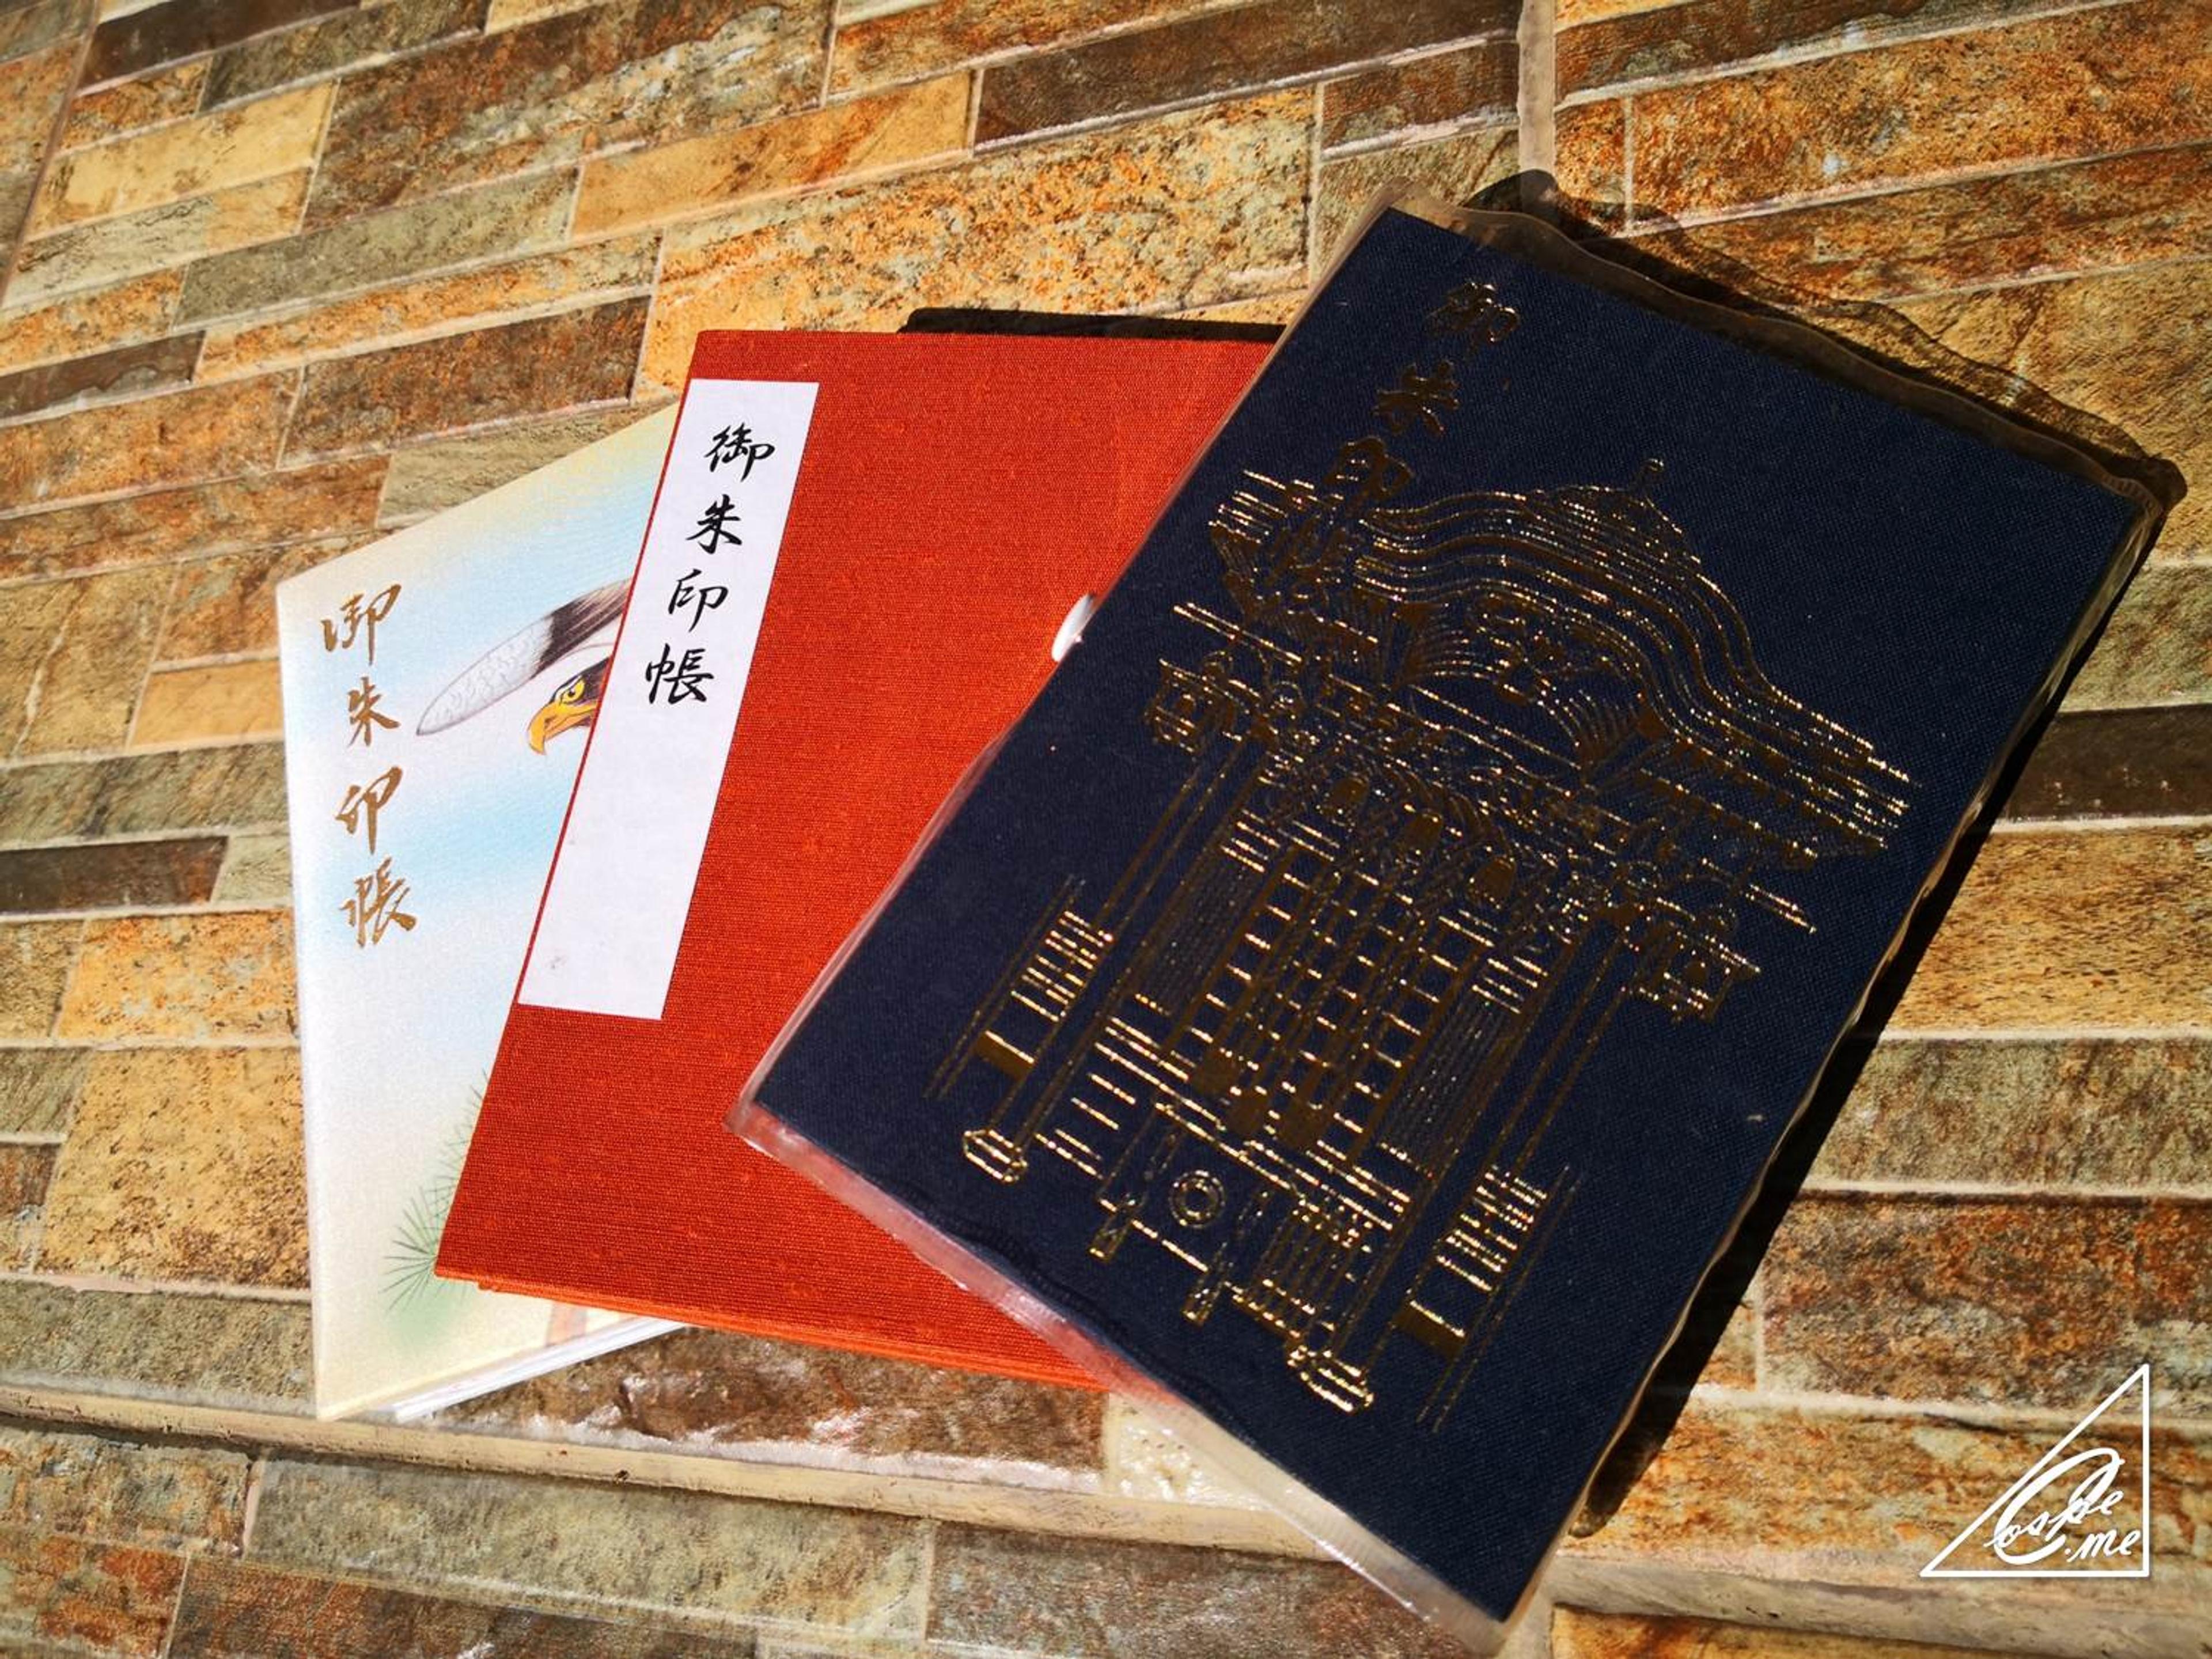 御朱印帳
御朱印帳
御朱印帳
Cospe
.me